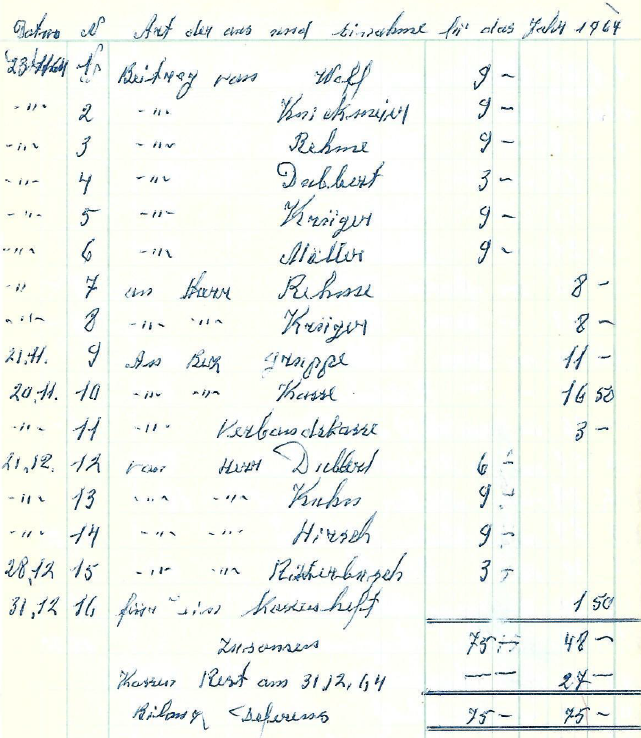 Datum N Art der aus und Einnahme für das Jahr 1964
23.11.64 1 Beitrag von Wolf 9 -
-"- 2 -"- Knickmeier 9 -
-"- 3 -"- Rehme 9 -
-"- 4 -"- Dabbert 3 -
-"- 5 -"- Krüger 9 -
-"- 6 -"- Müller 9 -
-"- 7 an Herr Rehme 8 -
-"- 8 -"- -"- Krüger 8 -
21.11. 9 An Bez gruppe 11 -
20.11. 10 -"- -"- Kasse 16 50
-"- 11 -"- Verbandskasse 3 -
21.12. 12 von Herr Dabbert 6 -
-"- 13 -"- -"- Kuhn 9 -
-"- 14 -"- -"- Hirsch 9 -
28.12 15 -"- -"- 3 -
31.12 16 für ein Kassenheft 1 50
Zusamen 75 - 48 -
Kassen Rest am 31.12.64 - 27 -
Bilanz 75 - 75 -